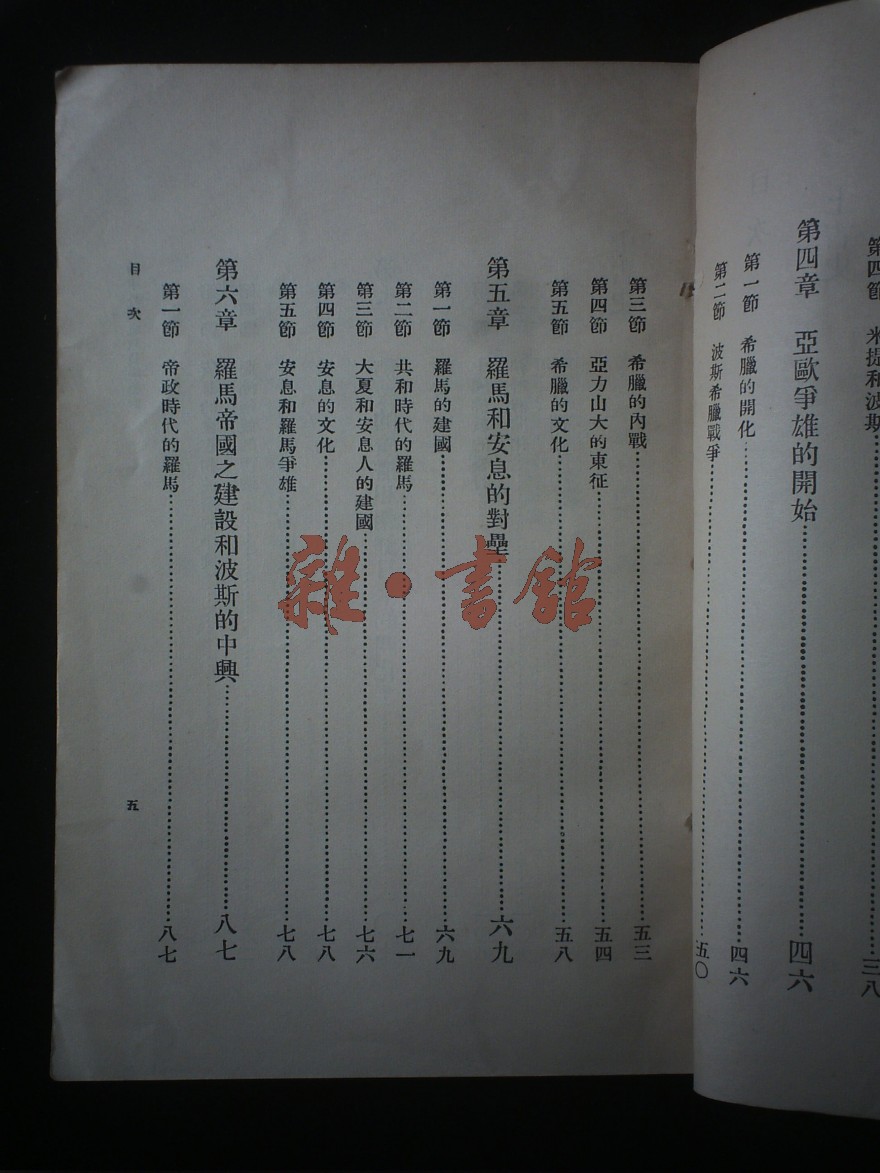 第四節 米提和波斯……三八
第四章 亞歐爭雄的開始……四六
第一節 希臘的開化……四六
第二節 波斯希臘戰爭……五〇
第三節 希臘的內戰……五三
第四節 亞力山大的東征……五四
第五節 希臘的文化……五八
第五章 羅馬和安息的對壘……六九
第一節 羅馬的建國……六九
第二節 共和時代的羅馬……七一
第三節 大夏和安息人的建國……七六
第四節 安息的文化……七八
第五節 安息和羅馬爭雄……七八
第六章 羅馬帝國之建設和波斯的中興……八七
第一節 帝政時代的羅馬……八七
目次
五
雜·書館